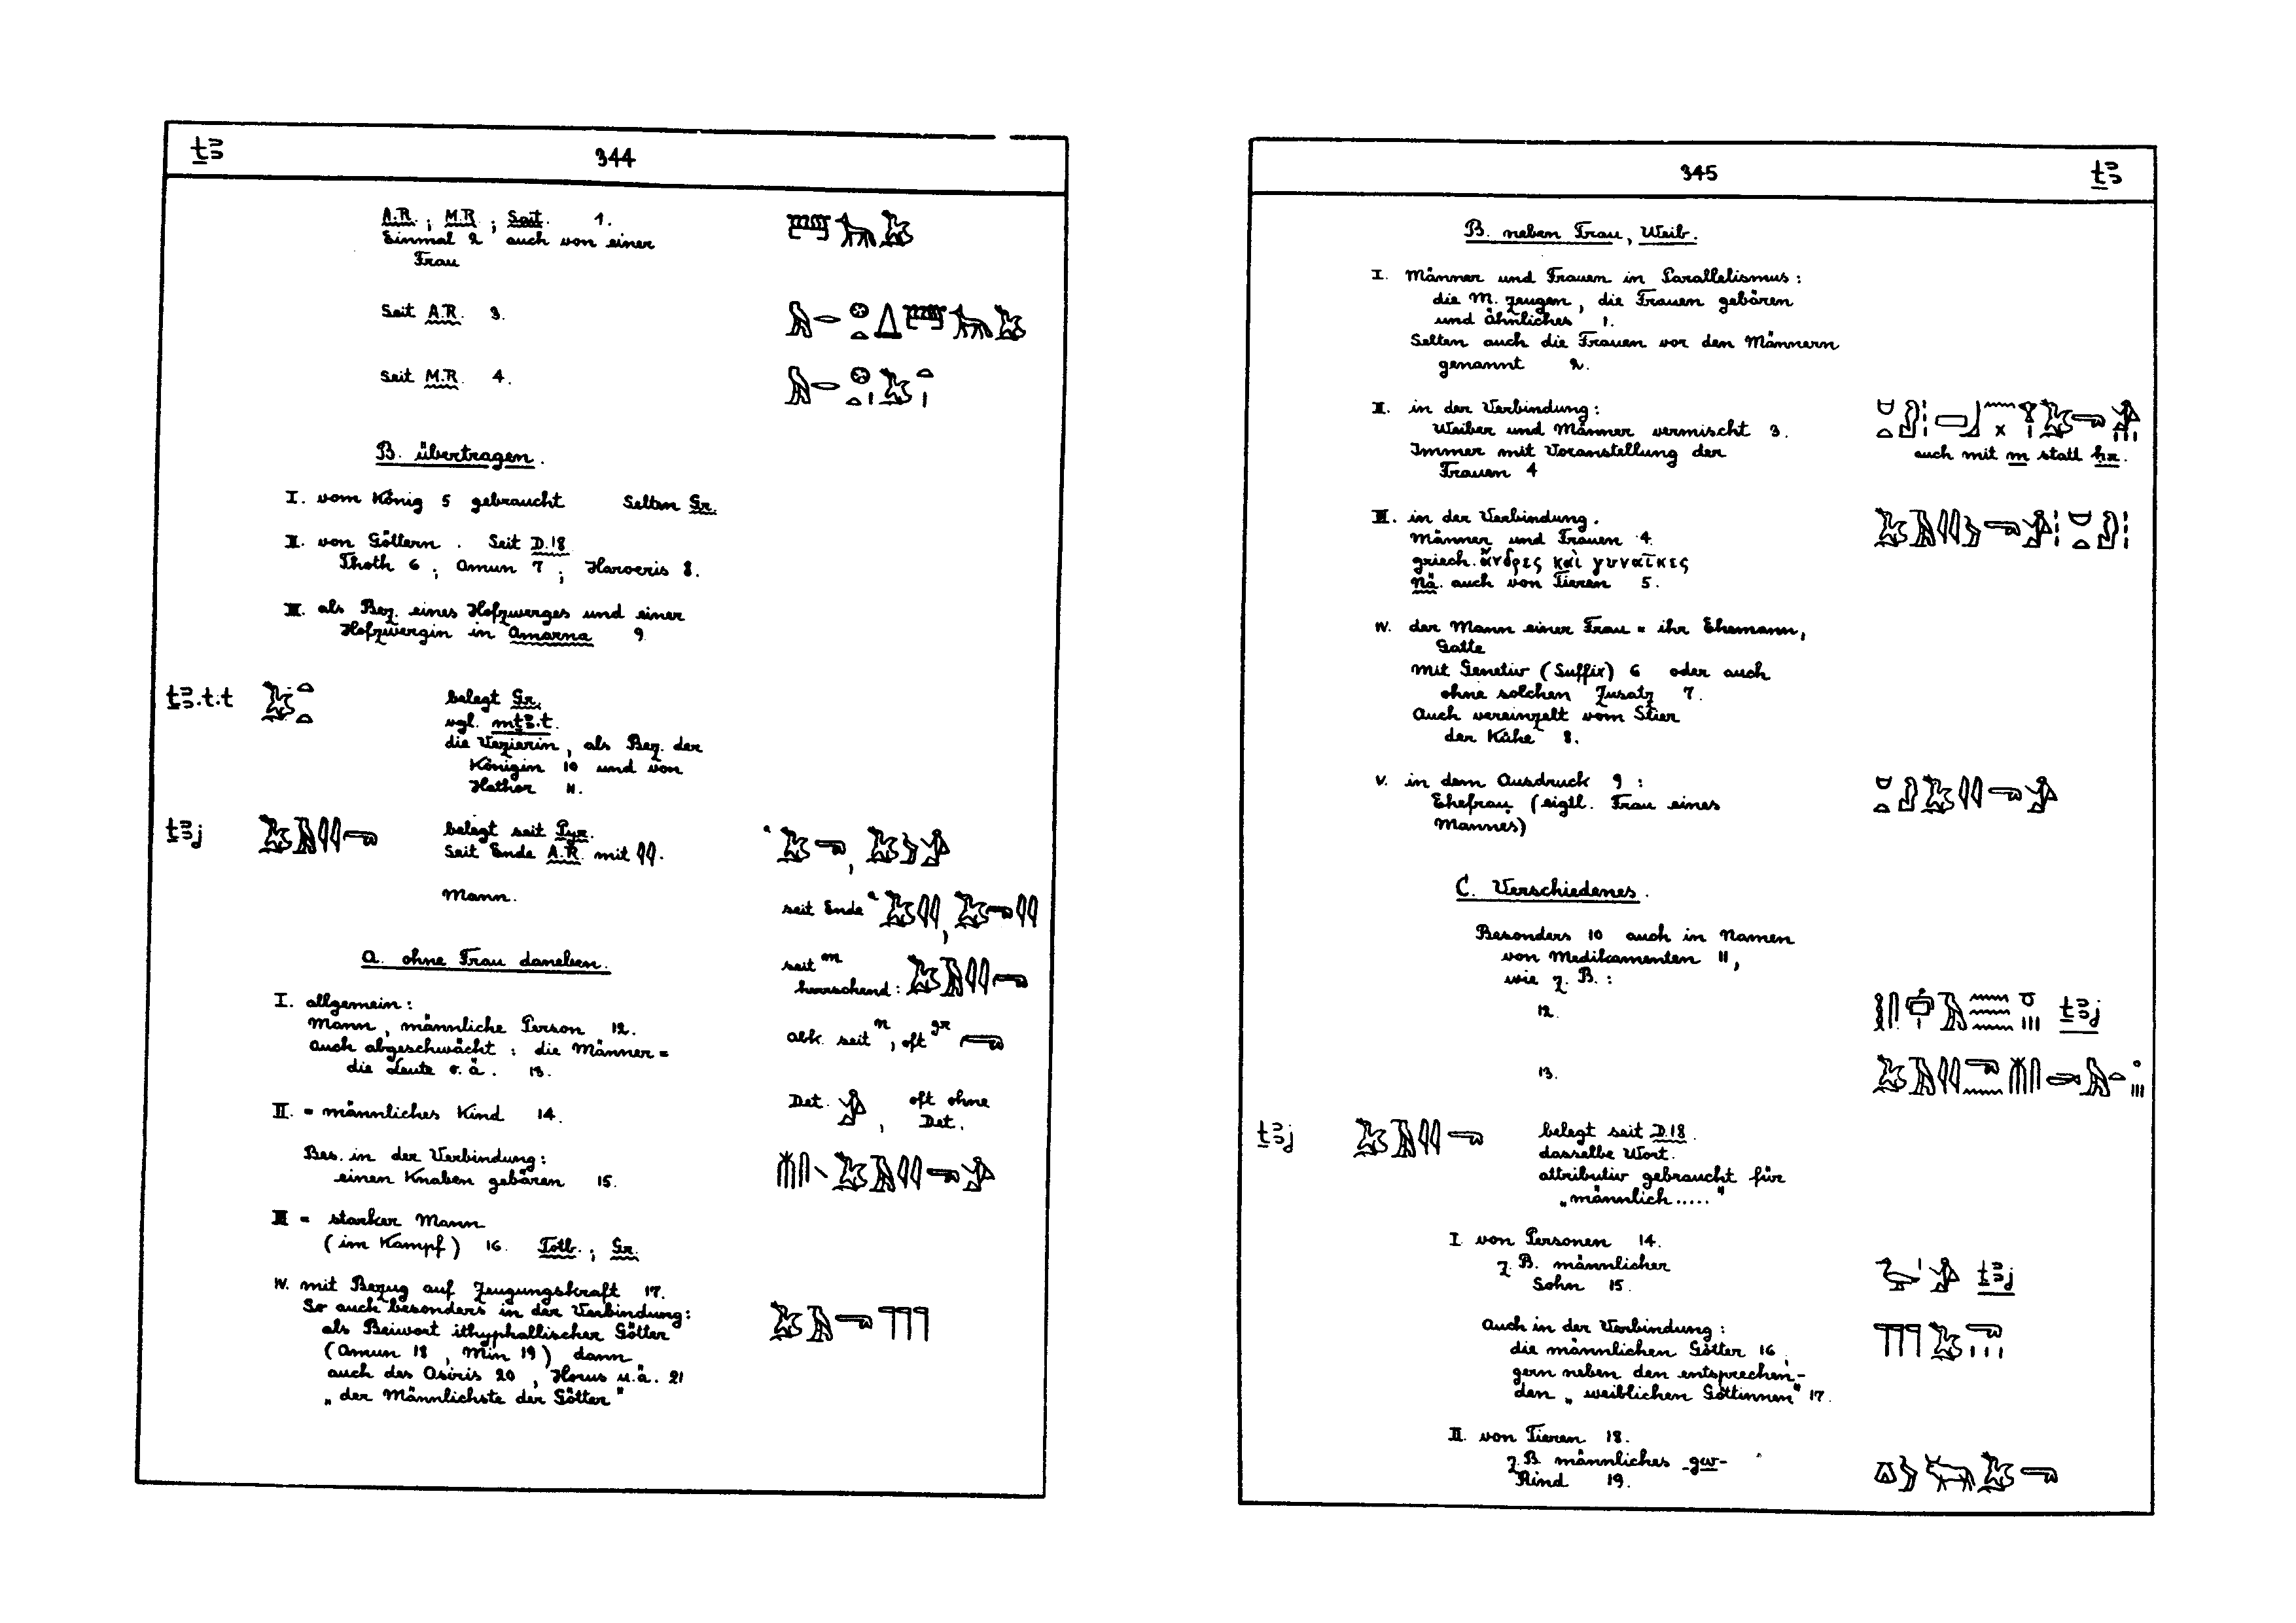 ṯꜣ
344
A.R. ; M.R. ; Sait. 1.
Einmal 2 auch von einer
Frau
Seit A.R. 3.
Seit M.R. 4.
B. übertragen.
I. vom König 5 gebraucht Selten Gr.
II. von Göttern . Seit D.18
Thoth 6 ; Amun 7 ; Haroeris 8.
III. als Bez. eines Hofzwerges und einer
Hofzwergin in Amarna 9
ṯꜣ.t.t
belegt Gr.
vgl. mtꜣ.t.
die Vezierin, als Bez. der
Königin 10 und von
Hathor 11.
ṯꜣj
belegt seit Pyr.
Seit Ende A.R. mit 𓇋𓇋.
Mann.
a
,
seit Ende a
,
seit m
herrschend:
Abk. seit n, oft gr
Det. , oft ohne
Det.
A. ohne Frau daneben.
I. allgemein:
Mann, männliche Person 12.
auch abgeschwächt: die Männer =
die Leute o.ä. 13.
II. = männliches Kind 14.
Bes. in der Verbindung:
einen Knaben gebären 15.
III = starker Mann
(im Kampf) 16. Totb. ; Gr.
IV. mit Bezug auf Zeugungskraft 17.
So auch besonders in der Verbindung:
als Beiwort ithyphallischer Götter
(Amun 18, Min 19) dann
auch des Osiris 20, Horus u.ä. 21
„der Männlichste der Götter"
345
ṯꜣ
B. neben Frau, Weib.
I. Männer und Frauen in Parallelismus:
die M. zeugen, die Frauen gebären
und ähnliches 1.
Selten auch die Frauen vor den Männern
genannt 2.
II. in der Verbindung:
Weiber und Männer vermischt 3.
Immer mit Voranstellung der
Frauen 4
auch mit m statt ḥr.
III. in der Verbindung.
Männer und Frauen 4.
griech. ἄνδρες καὶ γυναῖκες
Nä. auch von Tieren 5.
IV. der Mann einer Frau = ihr Ehemann,
Gatte
mit Genetiv (Suffix) 6 oder auch
ohne solchen Zusatz 7.
Auch vereinzelt vom Stier
der Kühe 8.
V. in dem Ausdruck 9:
Ehefrau (eigtl. Frau eines
Mannes)
C. Verschiedenes.
Besonders 10 auch in Namen
von Medikamenten 11,
wie z.B.:
12. ṯꜣj
13.
ṯꜣj
belegt seit D.18.
dasselbe Wort.
attributiv gebraucht für
„männlich....."
I von Personen 14.
z.B. männlicher
Sohn 15. ṯꜣj
Auch in der Verbindung:
die männlichen Götter 16,
gern neben den entsprechen-
den „weiblichen Göttinnen" 17.
II. von Tieren 18.
z.B. männliches -gw-
Rind 19.